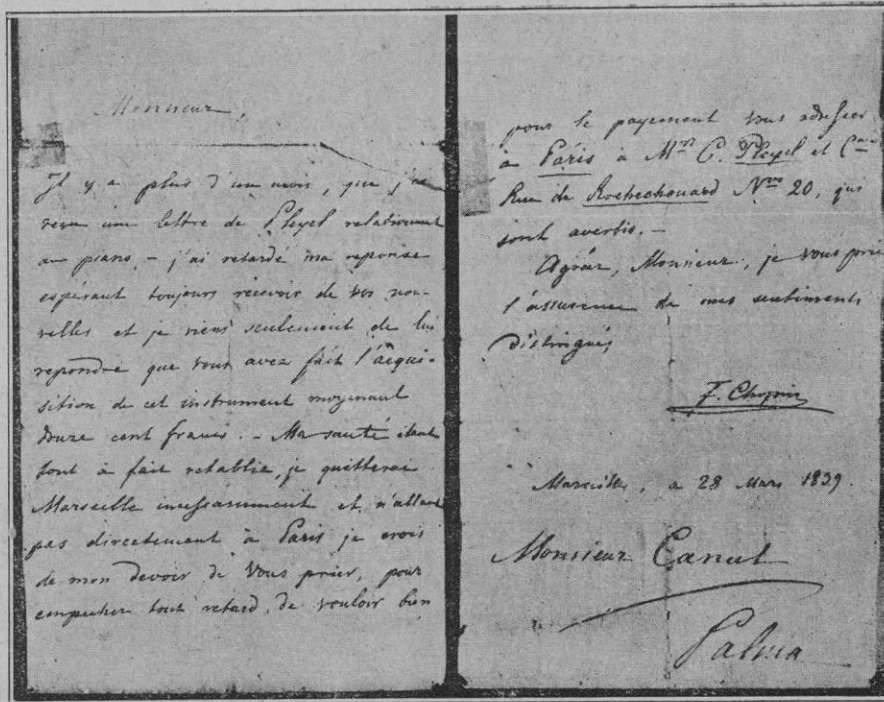 Monsieur,
Il y a plus d'un mois, que j'ai
reçu une lettre de Pleyel relativement
au piano – j'ai retardé ma reponse
espérant toujours recevoir de vos nou-
velles et je viens seulement de lui
repondre que vous avez fait l'acqui-
sition de cet instrument moyennant
douze cent francs. – Ma santé étant
tout à fait retablie, je quitterai
Marseille incessamment et n'allant
pas directement à Paris je crois
de mon devoir de vous prier, pour
empecher tout retard, de vouloir bien
pour le payement vous adresser
à Paris à Mrs C. Pleyel et Cnie
Rue de Rochechouard Nro 20, qui
sont avertis. –
Agréez, Monsieur, je vous prie
l'assurance de mes sentiments
distingués
F. Chopin
Marseille, a 28 Mars 1839.
Monsieur Canut
Palma